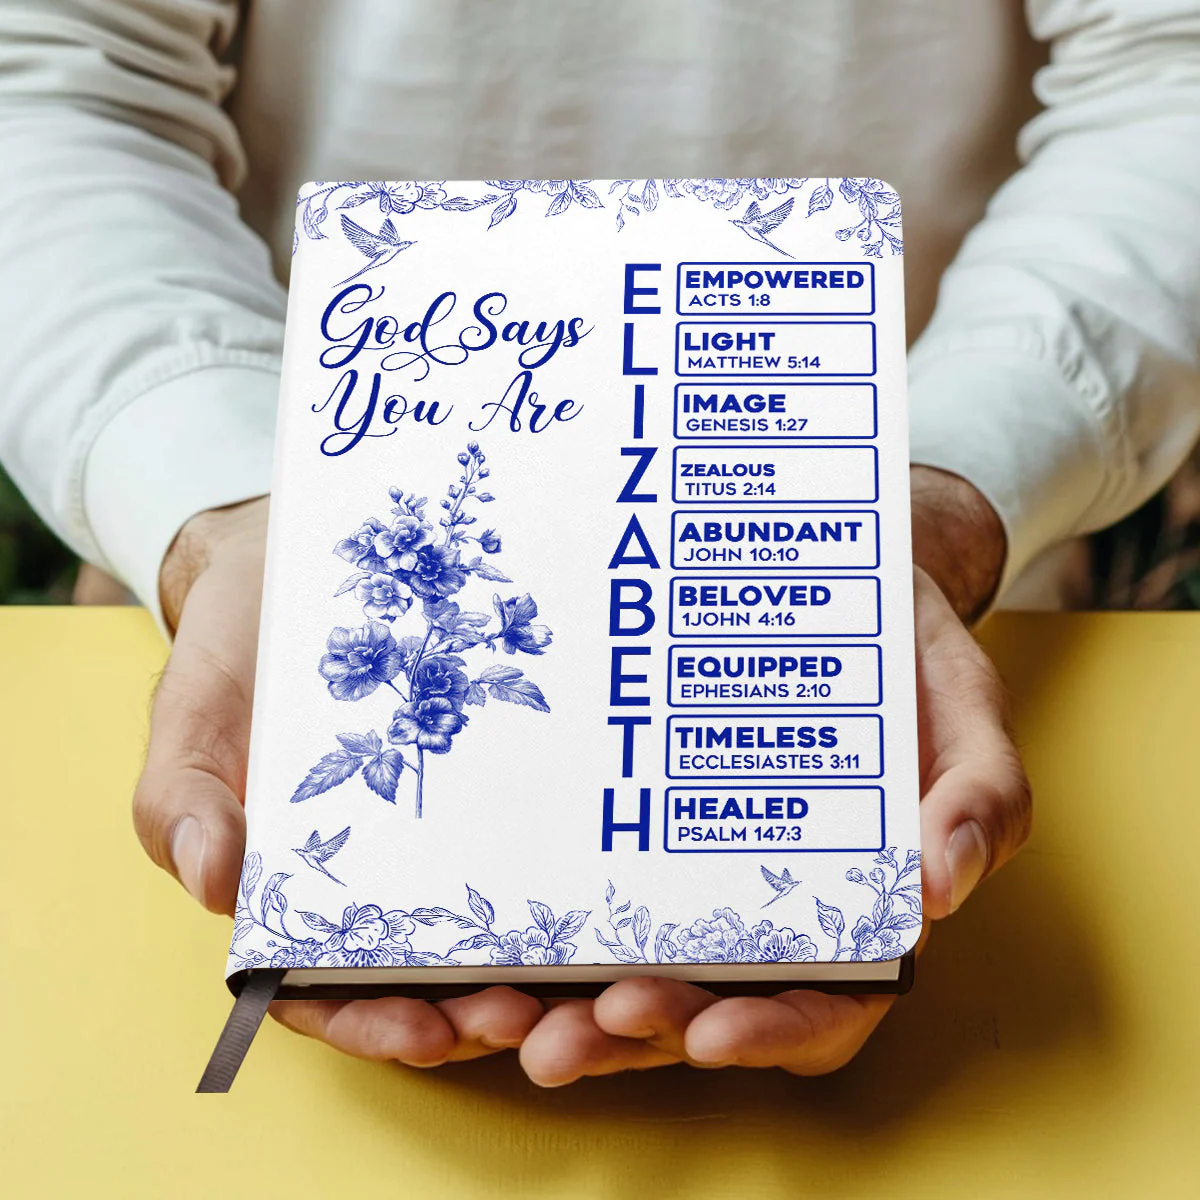 God Says
You Are
E
EMPOWERED
ACTS 1:8
L
LIGHT
MATTHEW 5:14
I
IMAGE
GENESIS 1:27
Z
ZEALOUS
TITUS 2:14
A
ABUNDANT
JOHN 10:10
B
BELOVED
1JOHN 4:16
E
EQUIPPED
EPHESIANS 2:10
T
TIMELESS
ECCLESIASTES 3:11
H
HEALED
PSALM 147:3